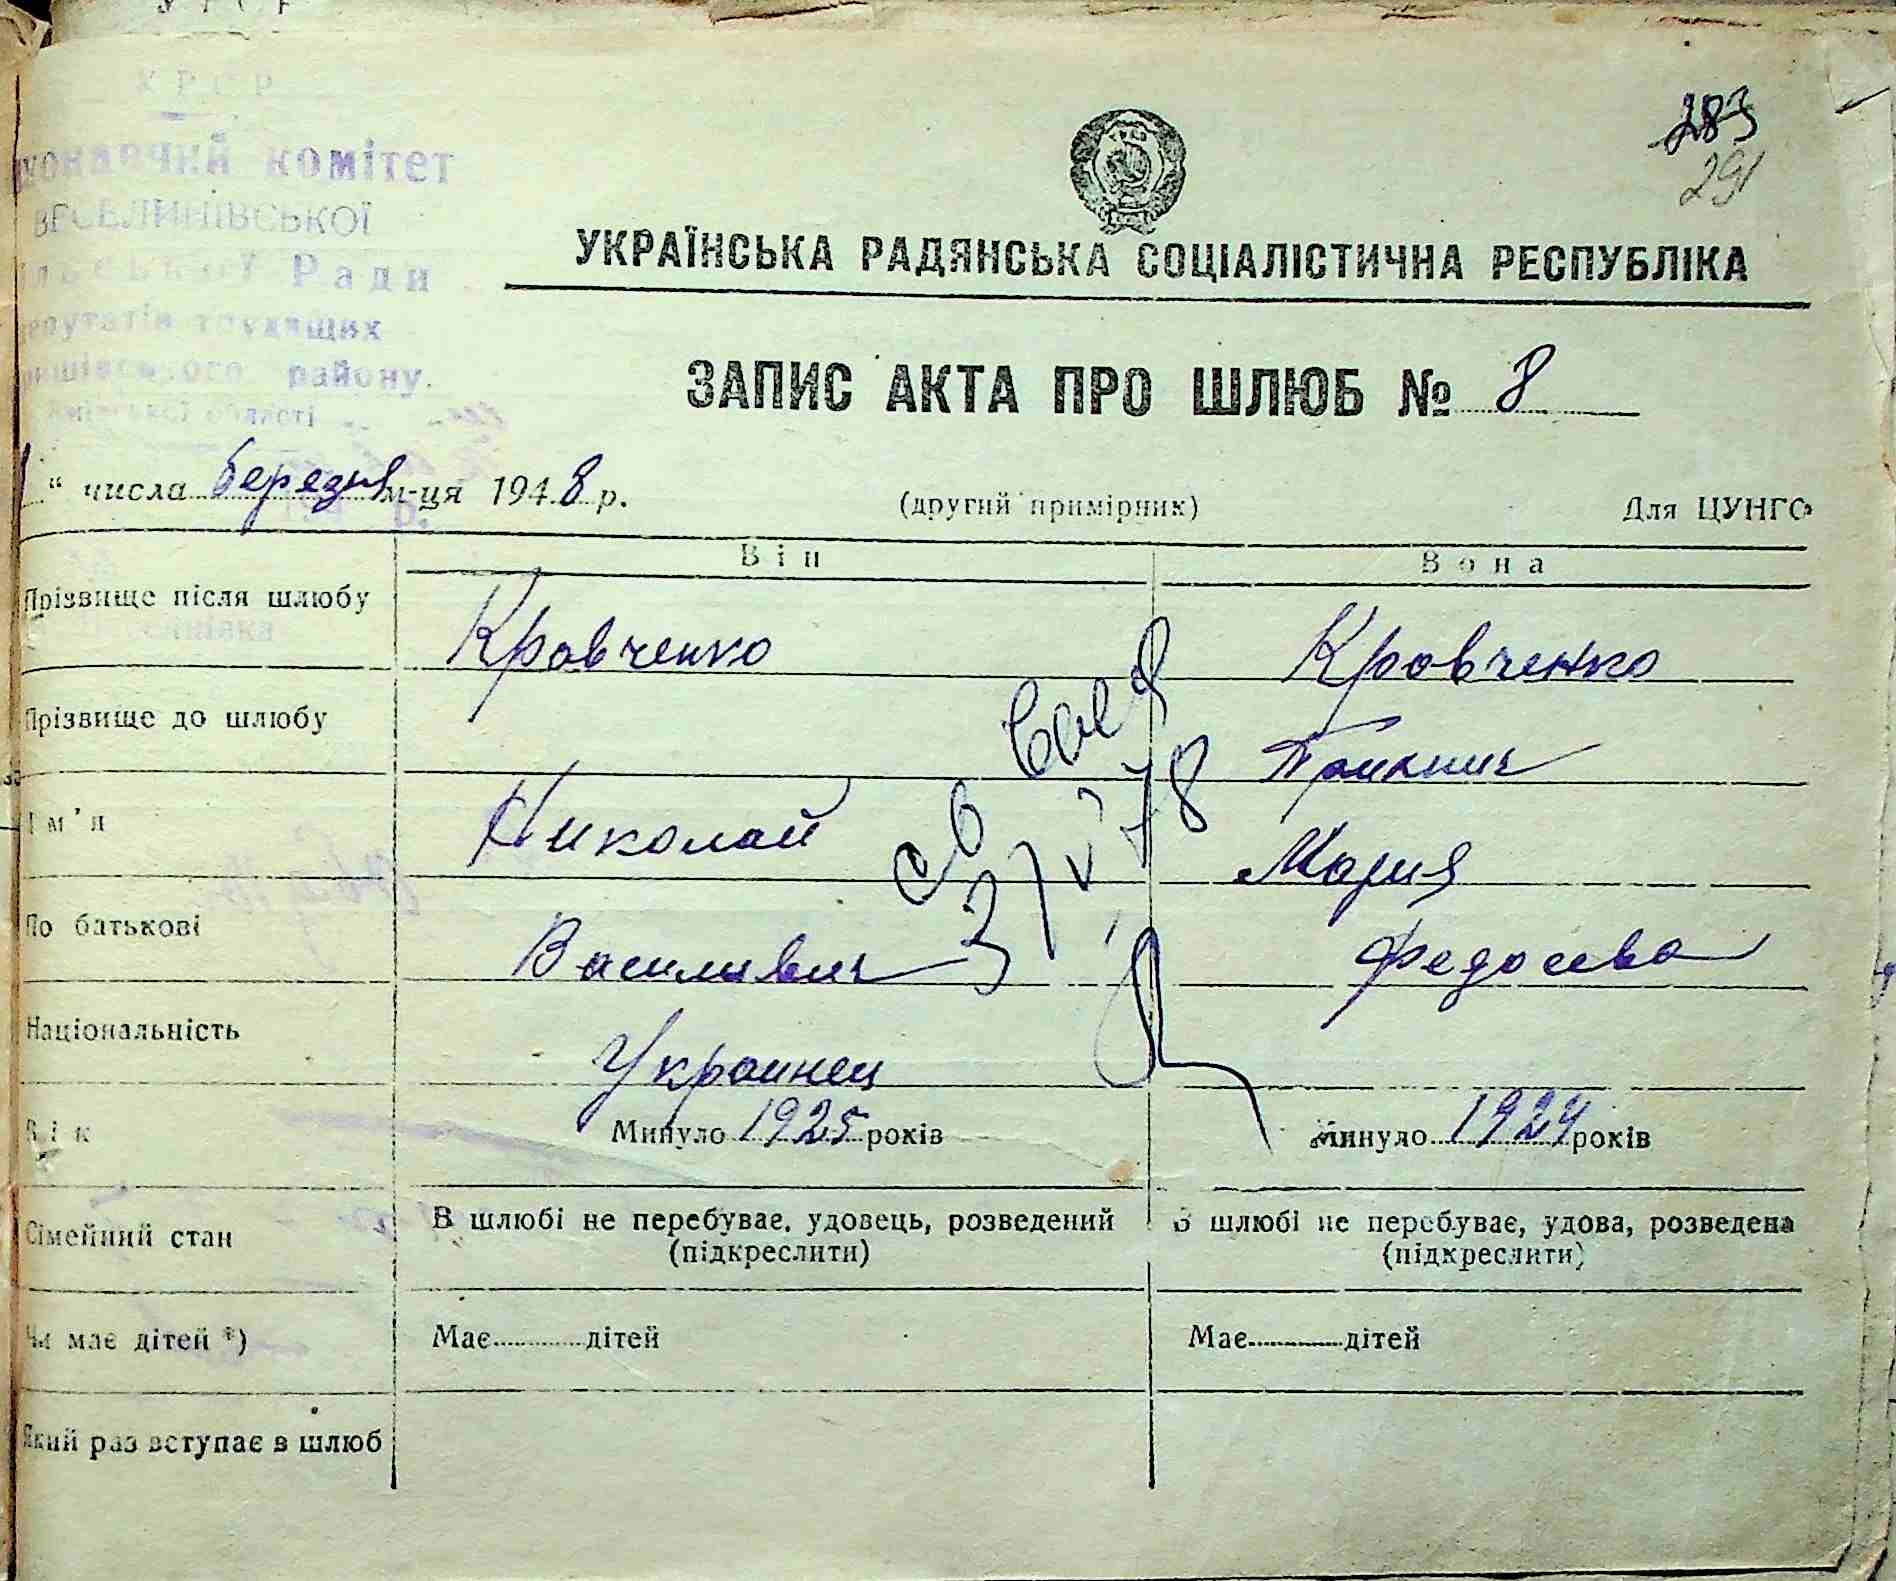 УРСР
УРСР
комітет
ВЕСЕЛИНІВСЬКОЇ
Ради
трудящих
району.
області
283
291
УКРАЇНСЬКА РАДЯНСЬКА СОЦІАЛІСТИЧНА РЕСПУБЛІКА
ЗАПИС АКТА ПРО ШЛЮБ № 8
" числа березня м-ця 1948 р.
(другий примірник)
Для ЦУНГО
Він Вона
Прізвище після шлюбу Кровченко Кровченко
Прізвище до шлюбу
Ім'я Николай Мария
По батькові Василивич Федосева
Національність Украинец
Вік Минуло 1925 років Минуло 1924 років
Сімейний стан В шлюбі не перебуває, удовець, розведений (підкреслити) В шлюбі не перебуває, удова, розведена (підкреслити)
Чи має дітей *) Має дітей Має дітей
Який раз вступає в шлюб